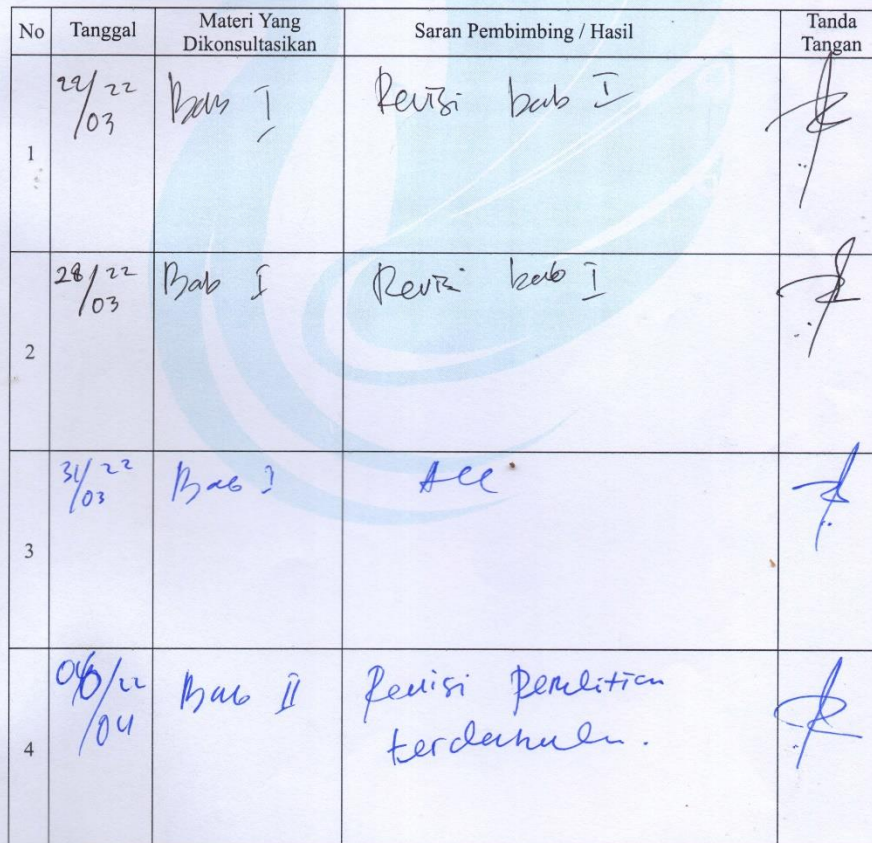 No Tanggal Materi Yang Dikonsultasikan Saran Pembimbing / Hasil Tanda Tangan
1 22/03 22 Bab I Revisi bab I
2 28/03 22 Bab I Revisi bab I
3 31/03 22 Bab I Acc
4 /04 22 Bab II Revisi Penelitian
terdahulu.